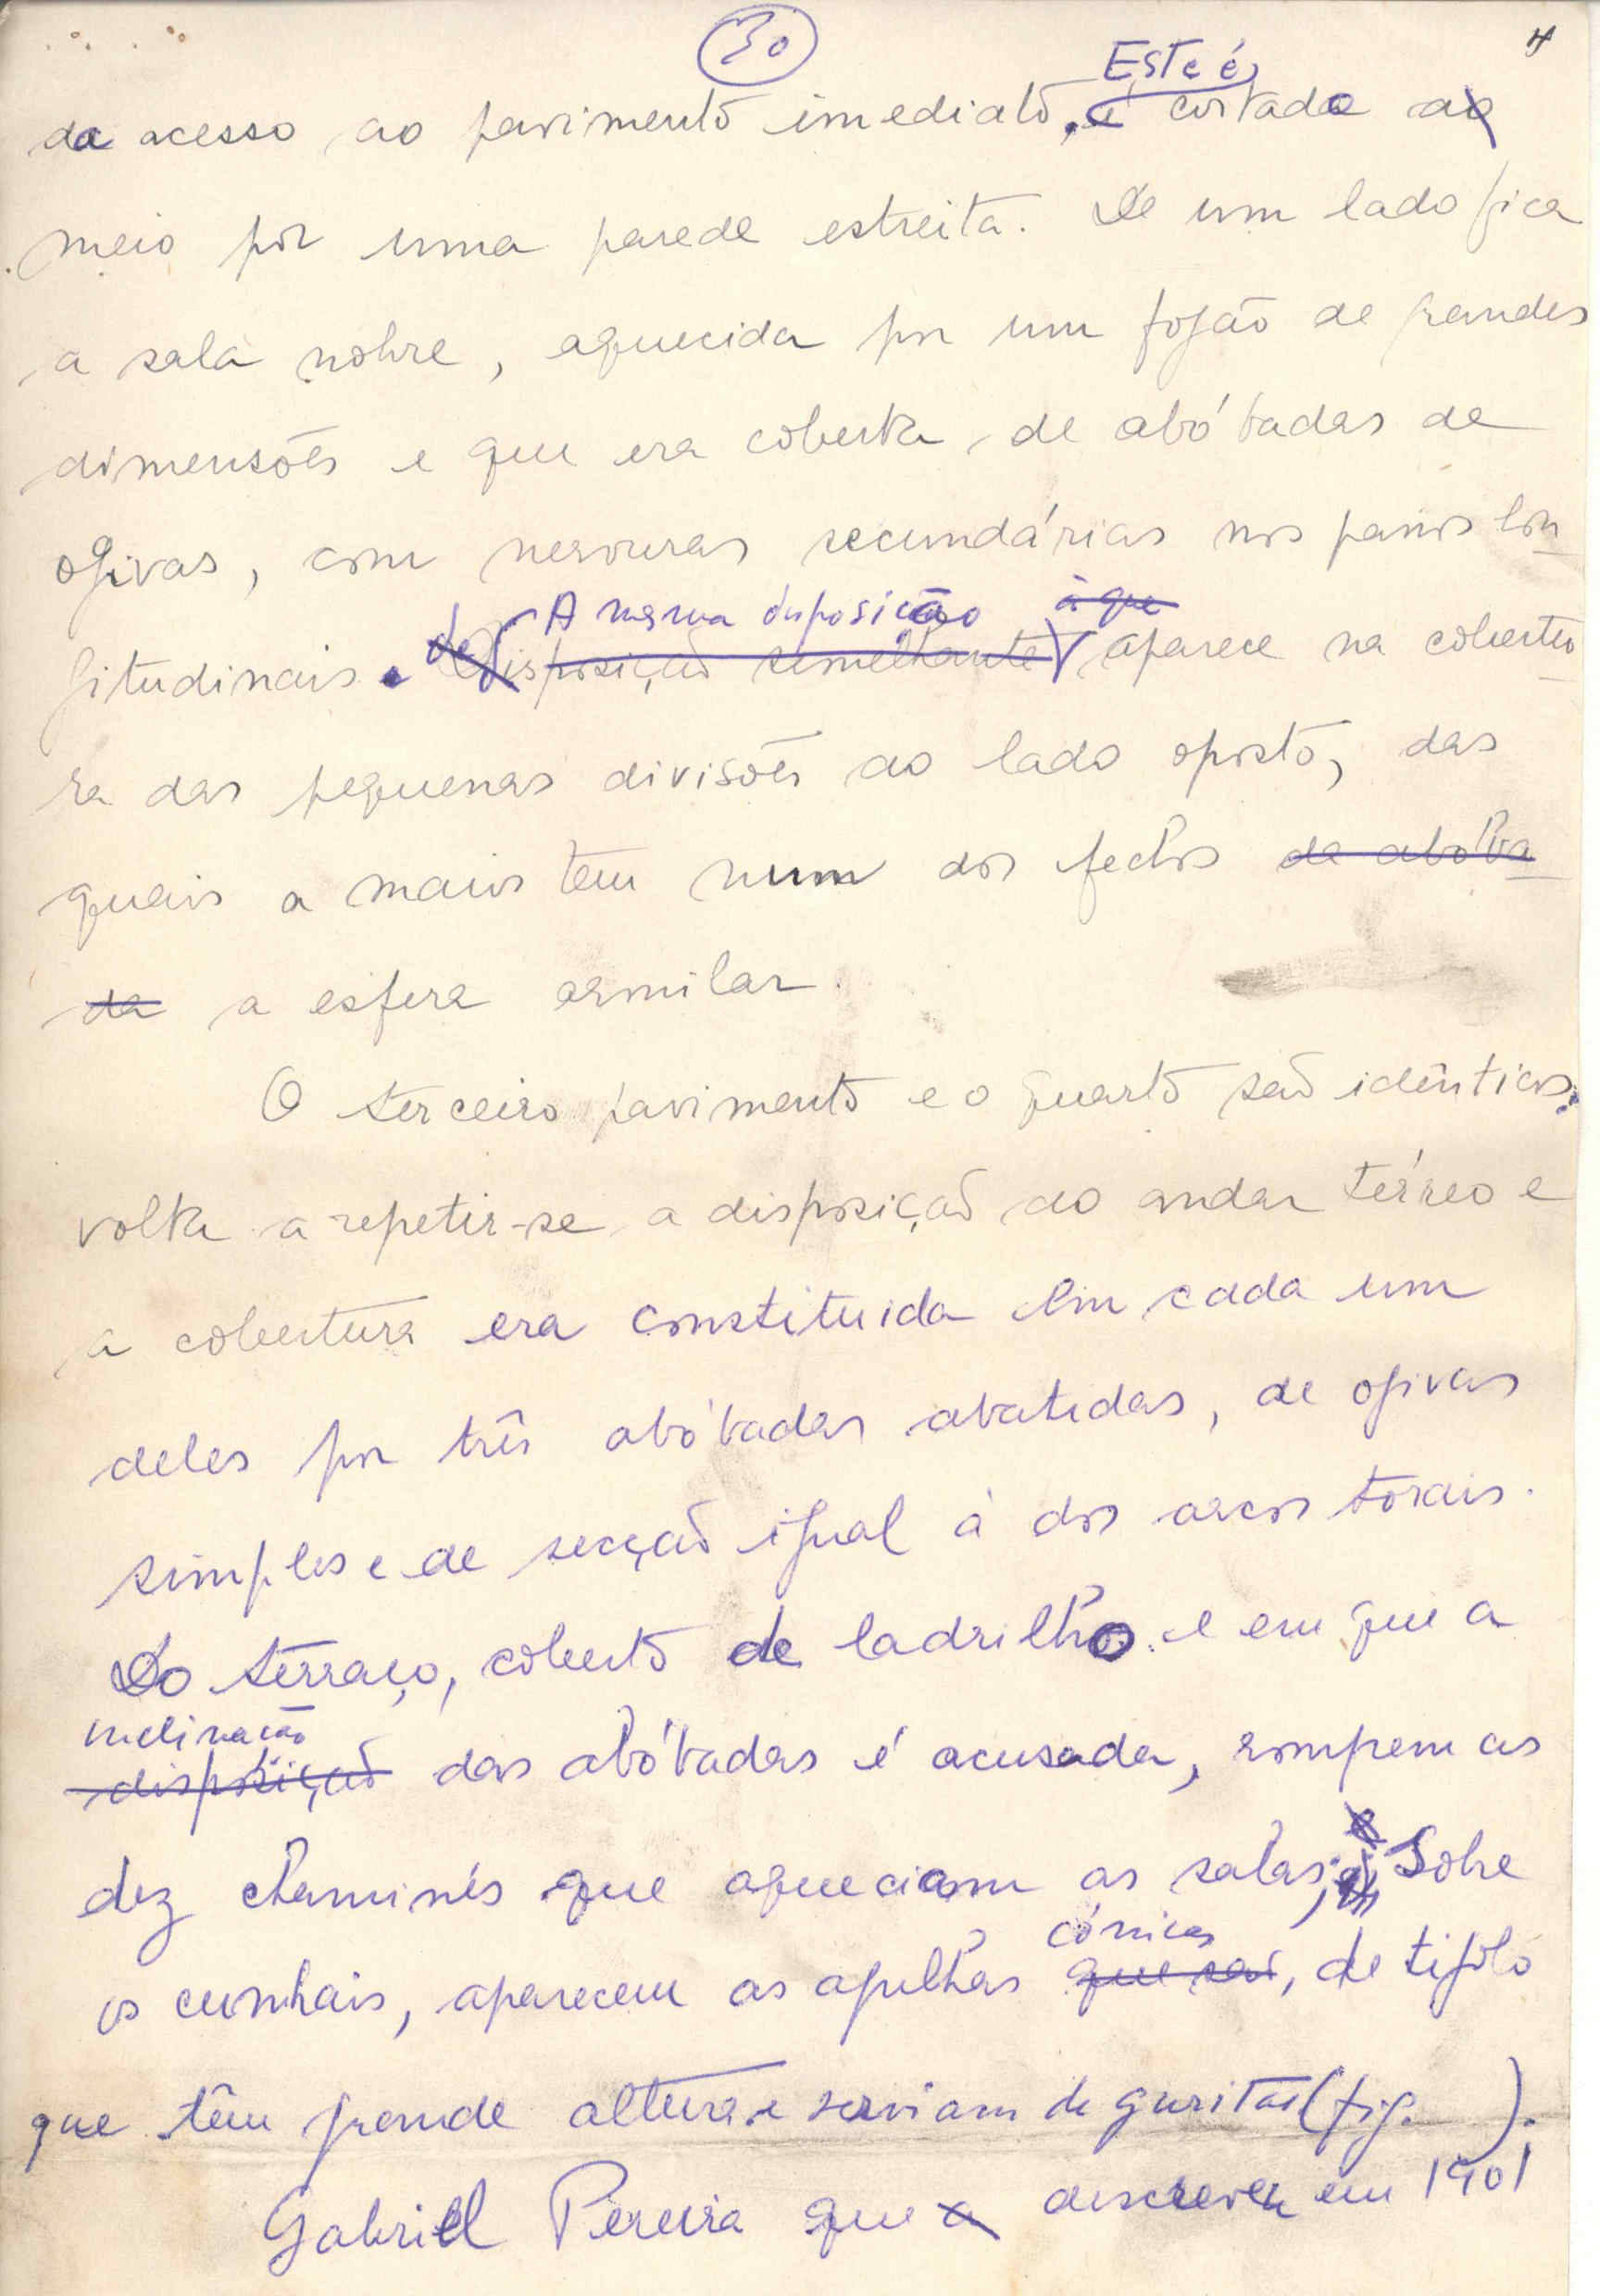 30
4
Este é
da acesso ao pavimento imediato, é cortado ao
meio por uma parede estreita. De um lado fica
a sala nobre, aquecida por um fogão de grandes
dimensões e que era coberta de abóbadas de
ogivas, com nervuras secundárias nos panos lon
A mesma disposição à que
gitudinais. de disposição semelhante aparece na cobertu
ra das pequenas divisões ao lado oposto, das
quais a maior tem num dos fechos da abóba
da a esfera armilar.
O terceiro pavimento e o quarto são idênticos:
volta a repetir-se a disposição do andar térreo e
a cobertura era constituida em cada um
deles por três abóbadas abatidas, de ogivas
simples e de secção igual à dos arcos torais.
Do terraço, coberto de ladrilho e em que a
inclinação
disposição das abóbadas é acusada, rompem as
dez chaminés que aqueciam as salas; Sobre
cónicas
os cunhais, aparecem as agulhas que são, de tijolo
que têm grande altura e serviam de guritas (fig. ).
Gabriel Pereira que a descreveu em 1901